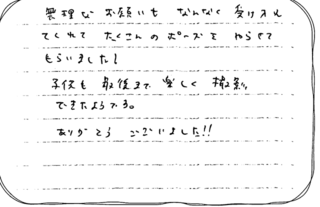 無理なお願いも なんなく 受け入れ
てくれて たくさんの ポーズを やらせて
もらいました!
子供も 最後まで 楽しく 撮影
できたようです。
ありがとう ございました!!